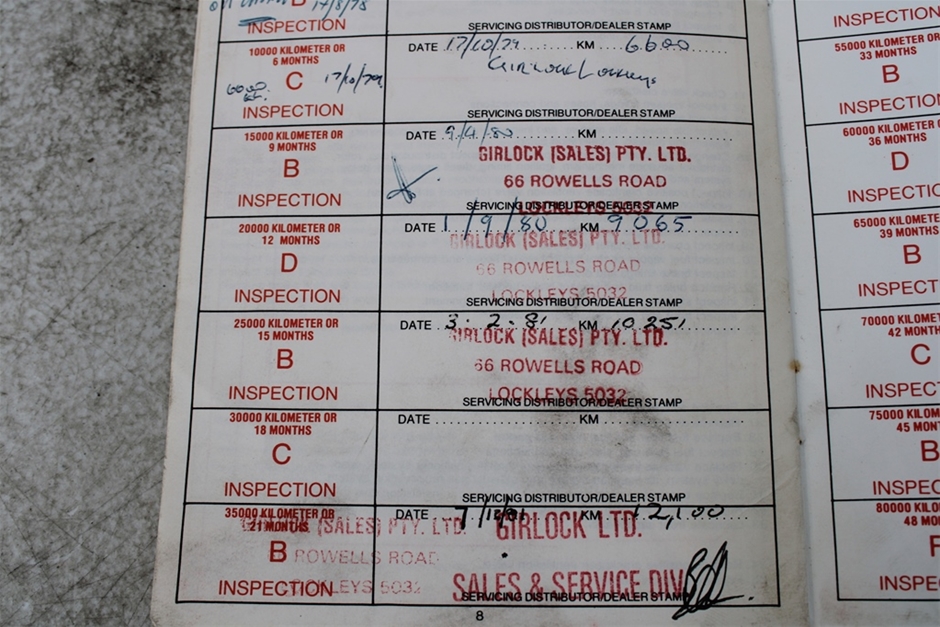 B 17/8/78
INSPECTION
SERVICING DISTRIBUTOR/DEALER STAMP
10000 KILOMETER OR
6 MONTHS
C 17/10/79
INSPECTION
DATE 17/10/79 KM 6600
Girlock Lockleys
SERVICING DISTRIBUTOR/DEALER STAMP
15000 KILOMETER OR
9 MONTHS
B
INSPECTION
DATE 9/4/80 KM
GIRLOCK (SALES) PTY. LTD.
66 ROWELLS ROAD
LOCKLEYS 5032
SERVICING DISTRIBUTOR/DEALER STAMP
20000 KILOMETER OR
12 MONTHS
D
INSPECTION
DATE 1/9/80 KM 9065
GIRLOCK (SALES) PTY. LTD.
66 ROWELLS ROAD
LOCKLEYS 5032
SERVICING DISTRIBUTOR/DEALER STAMP
25000 KILOMETER OR
15 MONTHS
B
INSPECTION
DATE 3.2.81 KM 10251
GIRLOCK (SALES) PTY. LTD.
66 ROWELLS ROAD
LOCKLEYS 5032
SERVICING DISTRIBUTOR/DEALER STAMP
30000 KILOMETER OR
18 MONTHS
C
INSPECTION
DATE KM
SERVICING DISTRIBUTOR/DEALER STAMP
35000 KILOMETER OR
21 MONTHS
B
INSPECTION
(SALES) PTY. LTD.
ROWELLS ROAD
LEYS 5032
DATE 7/12/81 KM 12,100
GIRLOCK LTD.
SALES & SERVICE DIV
SERVICING DISTRIBUTOR/DEALER STAMP
8
INSPECTION
55000 KILOMETE
33 MONTHS
B
INSPECTION
60000 KILOMETE
36 MONTHS
D
INSPECTIO
65000 KILOMETE
39 MONTHS
B
INSPECT
70000 KILOMET
42 MONTH
C
INSPEC
75000 KILOM
45 MON
B
INSPEC
80000 KILO
48 MO
INSPE